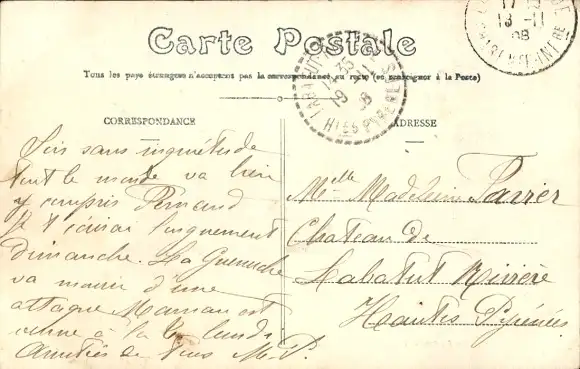 Carte Postale
Tous les pays étrangers n'acceptent pas la correspondance au recto (se renseigner à la Poste)
CORRESPONDANCE
ADRESSE
Sois sans inquiétude
tout le monde va bien
y compris Fernand
Je t'écrirai longuement
Dimanche. La Guenuche
va mourir d'une
attaque Maman est
venue à la lundi
Amitiés de tous M.P.
Melle Madeleine
Chateau de
Labatut Rivière
Hautes Pyrénées
LABATUT
Htes PYRENEES
13 -11
08